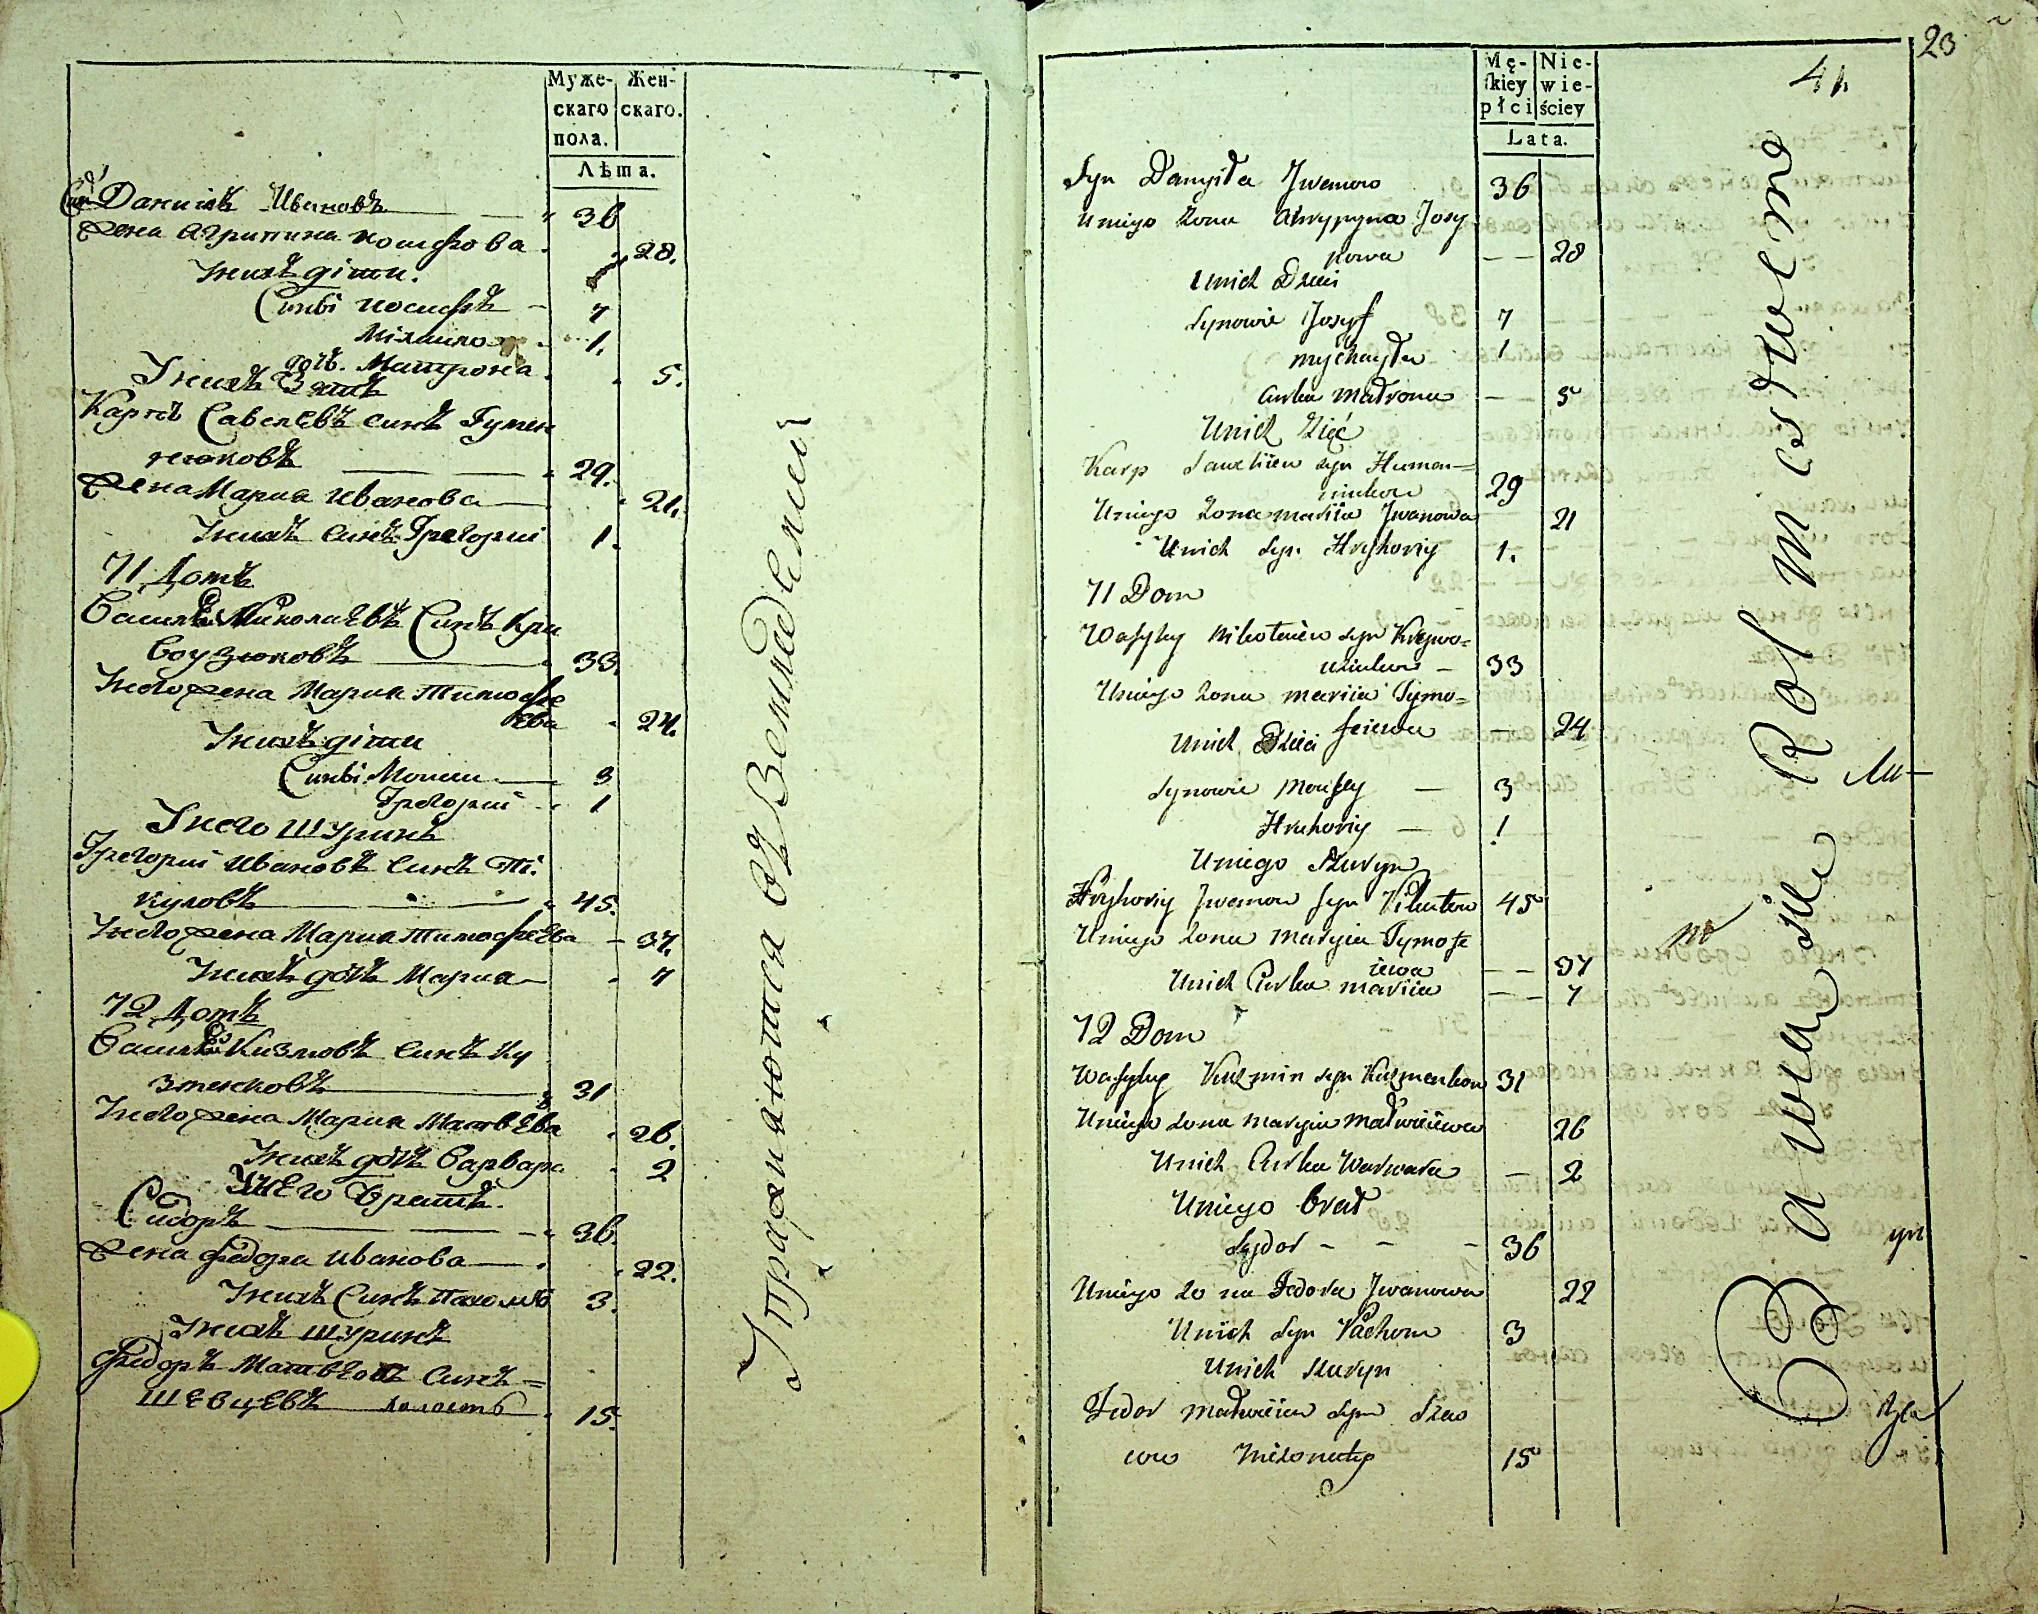 Муже-
скаго
пола.
Жен-
скаго.
Лѣта.
Синъ Даниилъ Ивановъ 36
Жена Агрипина Иосифова 28.
Унихъ діти.
Сини Иосифъ 7
Міхаило 1.
дочъ. Матрона 5.
Унихъ Зять
Карпъ Савелевъ синъ Гумен
нюковъ 29.
Жена Мария Иванова 21.
Унихъ синъ Грегорий 1.
71 Домъ
Василей Николаевъ Синъ Кри
воузюковъ 33.
Унего жена Мария Тимофе
ева 24.
Унихъ діти
Сини Мосей 3
Грегорий 1
Унего Шуринъ
Грегорий Ивановъ синъ Пі
куловъ 45.
Унего жена Мария Тимофеева 37.
Унихъ дочъ Мария 7
72 Домъ
Василей Кизмовъ синъ Ку
зменковъ 31
Унего жена Мария Матвеева 26.
Унихъ дочъ Варвара 2
Унего братъ.
Сидоръ 36.
Жена Федора Иванова 22.
Унихъ Синъ Пахомъ 3.
Унихъ шуринъ
Федоръ Матвеовъ синъ
Шевцевъ холостъ 15.
Упражняются въ Земледелии
23
41
Mę-
skiey
płci
Nie-
wie-
ściey
Lata.
Syn Danyiła Jwanow 36
Uniego żona Ahrypyna Josy
powa 28
Unich Dzieci
Synowie Josyf 7
Mychayła 1
Curka Matrona 5
Unich Zięć
Karp Saweliiew syn Human=
niukow 29
Uniego żona Mariia Jwanowa 21
Unich Syn Hryhoriy 1.
71 Dom
Wasyley Nikołaiew syn Krywo=
uziukow 33
Uniego żona Mariia Tymo=
feiewa 24
Unich Dzieci
Synowie Mousey 3
Hryhoriy 1
Uniego Szuryn
Hryhoriy Jwanow syn Pikułow 45
Uniego żona Maryia Tymofe
iewa 37
Unich Curka Mariia 7
72 Dom
Wasyley Kuzmin syn Kuzmenkow 31
Uniego żona Maryia Matwieiewa 26
Unich Curka Warwara 2
Uniego brat
Sydor 36
Uniego żona Fedora Jwanowa 22
Unich Syn Pachom 3
Unich szuryn
Fedor Matwieiew Syn Szew
cow Nieżonaty 15
Bawią sie Rolnictwem